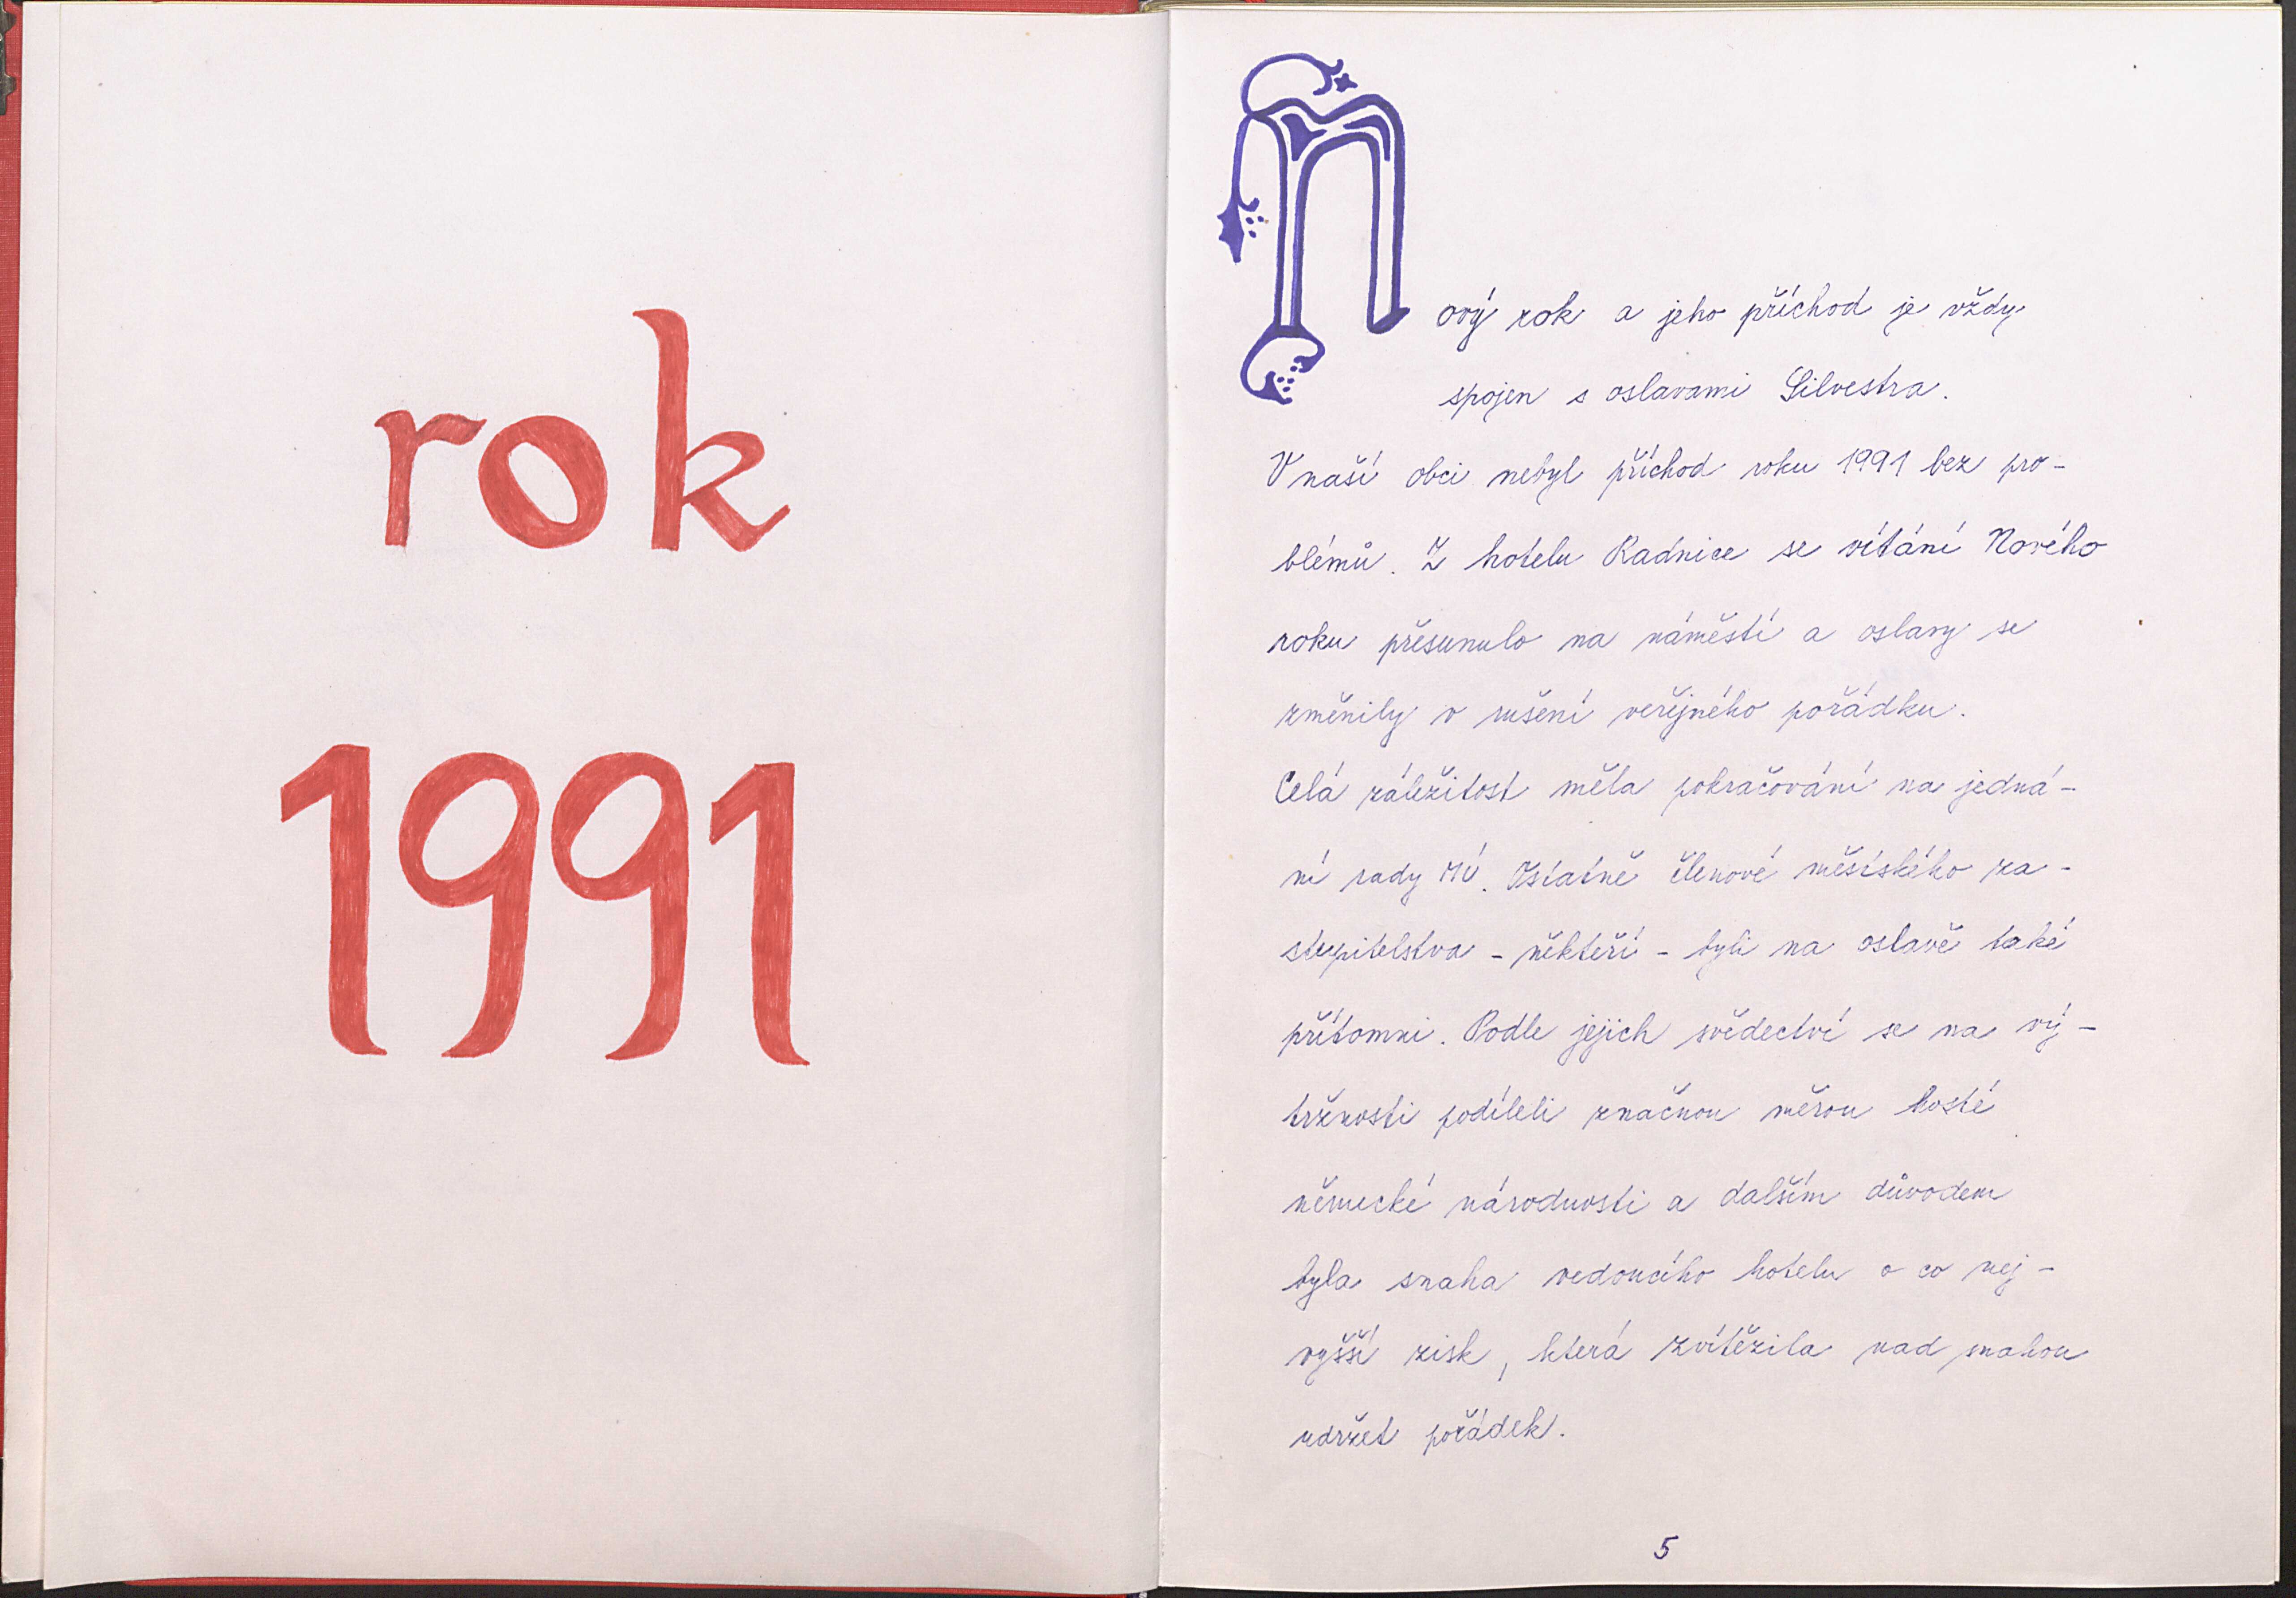 rok
1991
Nový rok a jeho příchod je vždy
spojen s oslavami Silvestra.
V naší obci nebyl příchod roku 1991 bez pro-
blémů. Z hotelu Radnice se vítání Nového
roku přesunulo na náměstí a oslavy se
změnily v rušení veřejného pořádku.
Celá záležitost měla pokračování na jedná-
ní rady MÚ. Ostatně členové městského za-
stupitelstva - někteří - byli na oslavě také
přítomni. Podle jejich svědectví se na vý-
tržnosti podíleli značnou měrou hosté
německé národnosti a dalším důvodem
byla snaha vedoucího hotelu o co nej-
vyšší zisk, která zvítězila nad snahou
udržet pořádek.
5